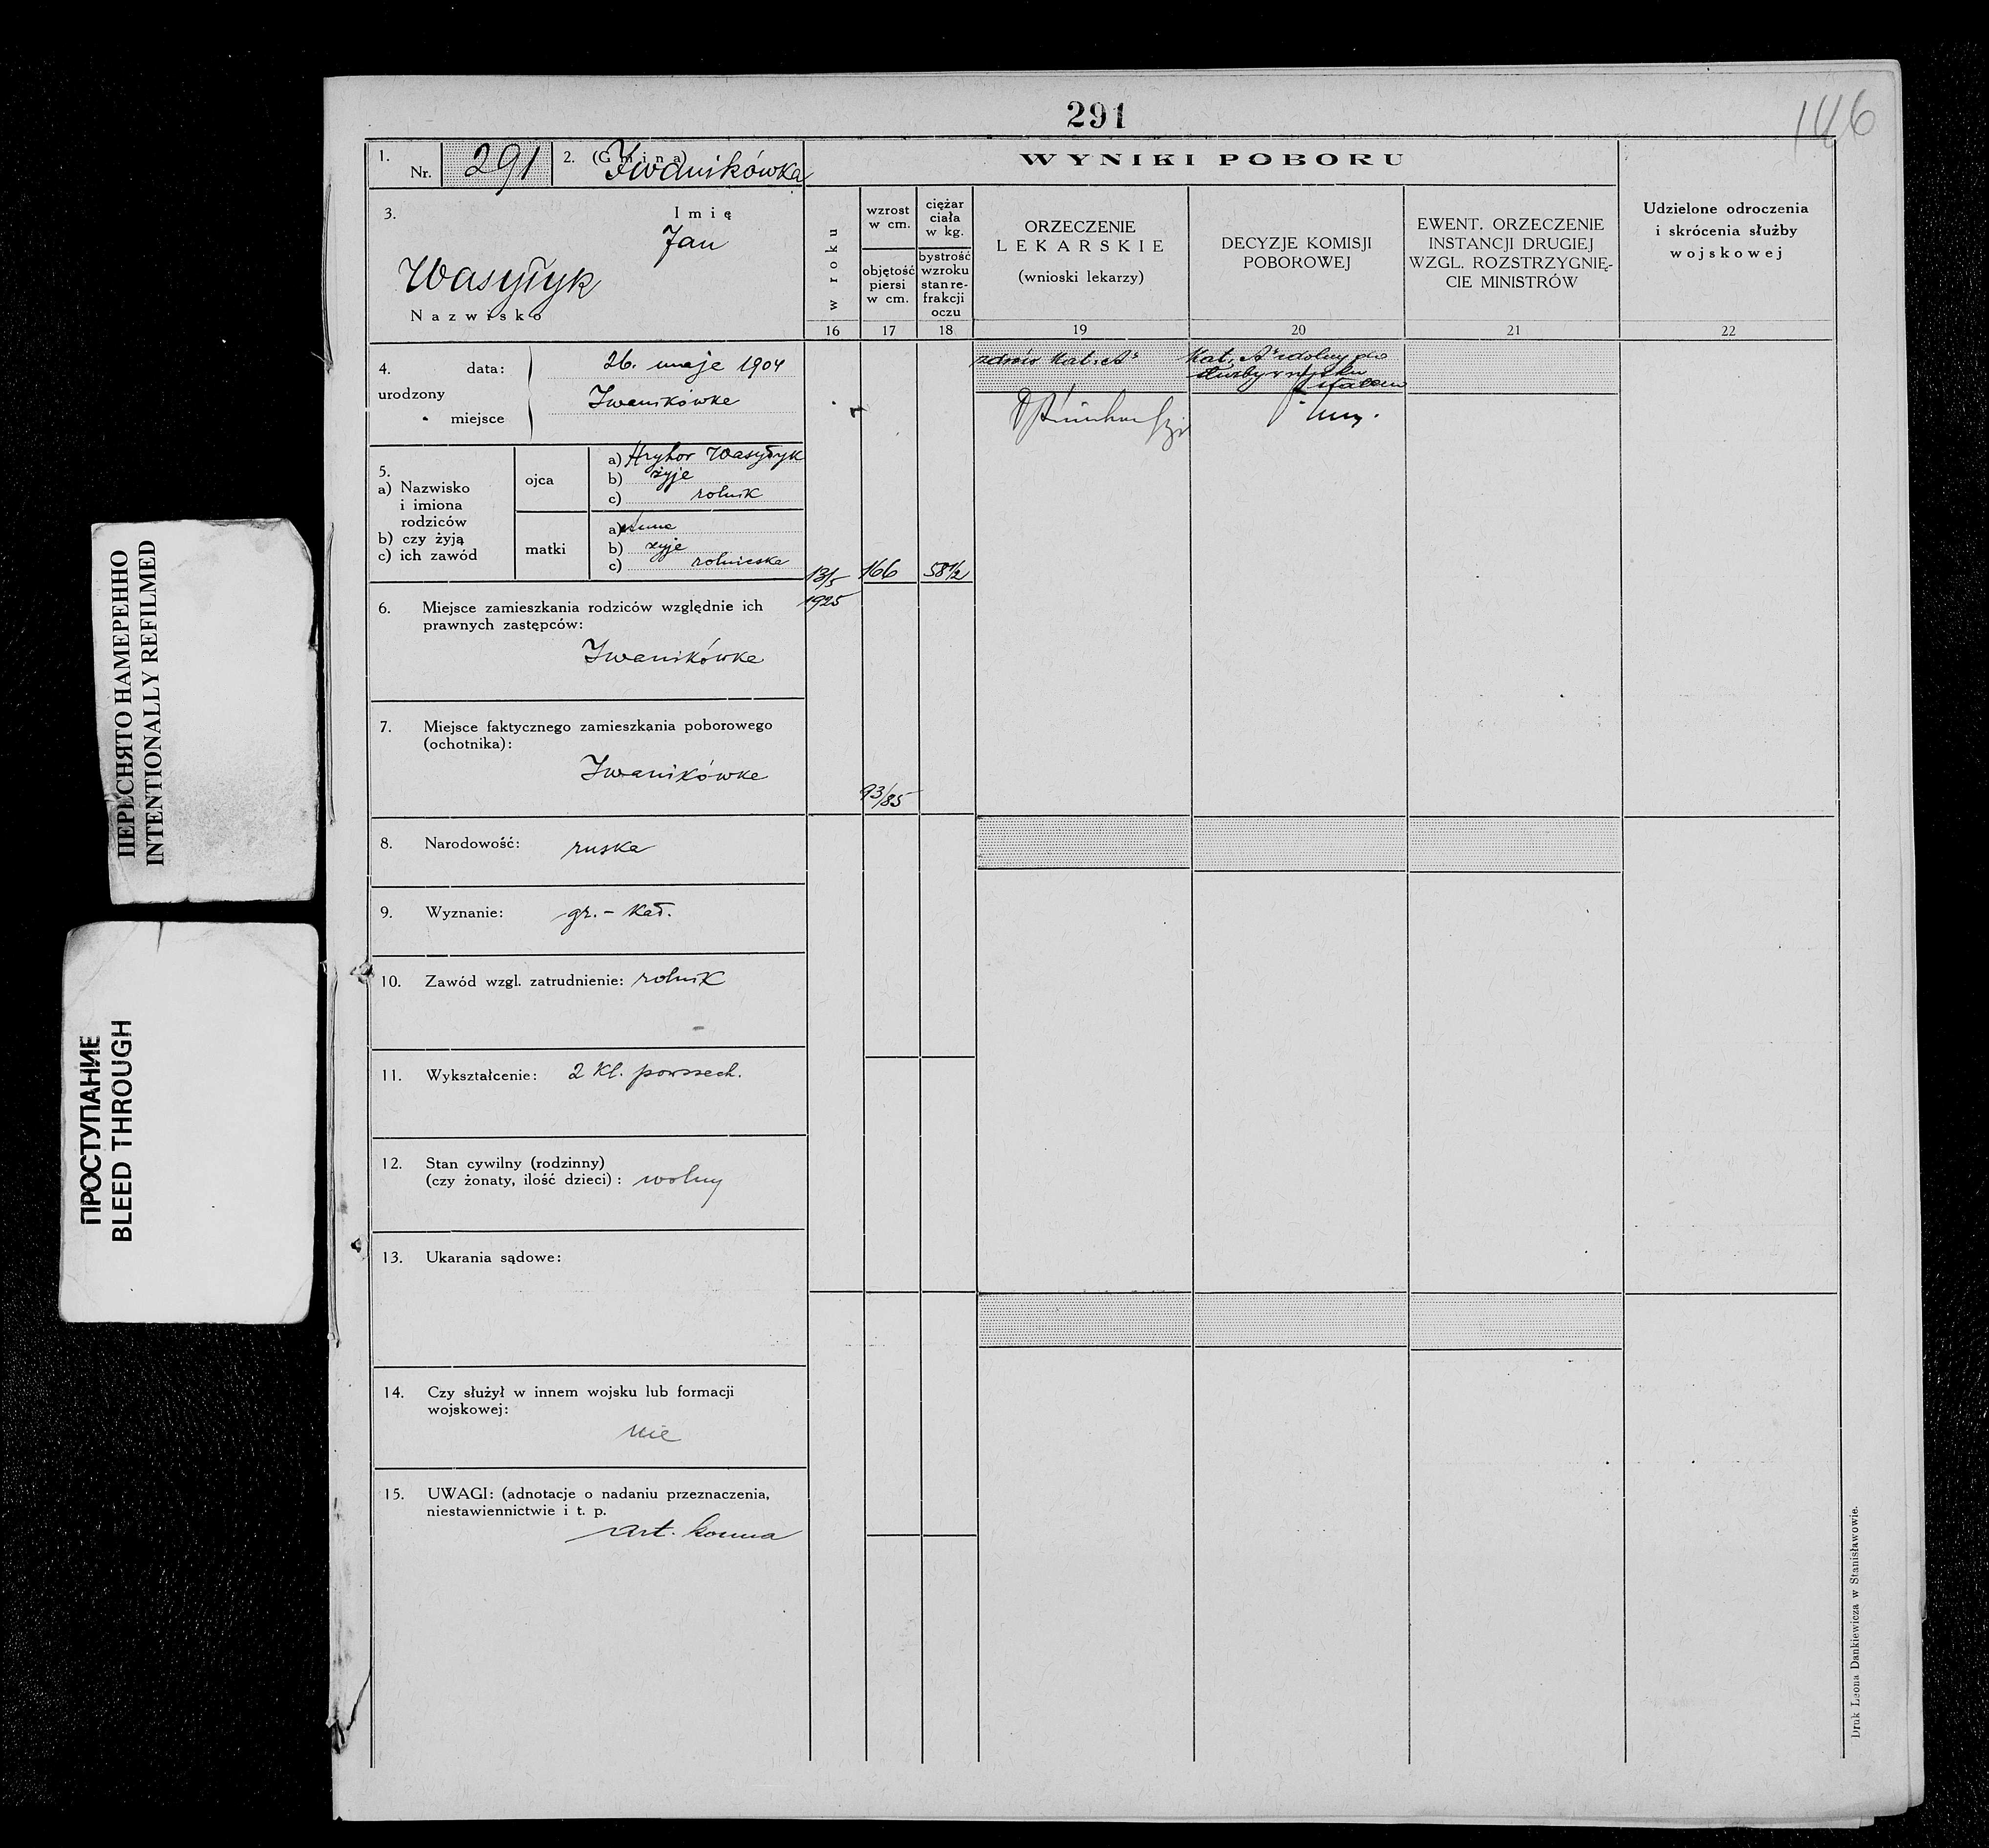 291
146
1. Nr. 291 2. (Gmina) Iwanikówka
WYNIKI POBORU
3. Imię
Jan
Wasyłyk
Nazwisko
w roku
wzrost w cm.
objętość piersi w cm.
ciężar ciała w kg.
bystrość wzroku stan re- frakcji oczu
ORZECZENIE
LEKARSKIE
(wnioski lekarzy)
DECYZJE KOMISJI
POBOROWEJ
EWENT. ORZECZENIE
INSTANCJI DRUGIEJ
WZGL. ROZSTRZYGNIĘ-
CIE MINISTRÓW
Udzielone odroczenia
i skrócenia służby
wojskowej
16 17 18 19 20 21 22
4. data: 26. maja 1904
urodzony
miejsce Iwanikówka
Kat. „A"
Kat. „A" zdolny do
służby w wojsku
stałem
5.
a) Nazwisko
i imiona
rodziców
b) czy żyją
c) ich zawód
ojca
a) Hryhor Wasyłyk
b) żyje
c) rolnik
matki
a) Anna
b) żyje
c) rolniczka
13/5
1925
166
58 1/2
93/85
6. Miejsce zamieszkania rodziców względnie ich
prawnych zastępców:
Iwanikówka
7. Miejsce faktycznego zamieszkania poborowego
(ochotnika):
Iwanikówka
8. Narodowość: ruska
9. Wyznanie: gr.-kat.
10. Zawód wzgl. zatrudnienie: rolnik
11. Wykształcenie: 2 kl. powszech.
12. Stan cywilny (rodzinny)
(czy żonaty, ilość dzieci): wolny
13. Ukarania sądowe:
14. Czy służył w innem wojsku lub formacji
wojskowej:
nie
15. UWAGI: (adnotacje o nadaniu przeznaczenia,
niestawiennictwie i t. p.
art. konna
Druk Leona Dankiewicza w Stanisławowie.
ПЕРЕСНЯТО НАМЕРЕННО
INTENTIONALLY REFILMED
ПРОСТУПАНИЕ
BLEED THROUGH